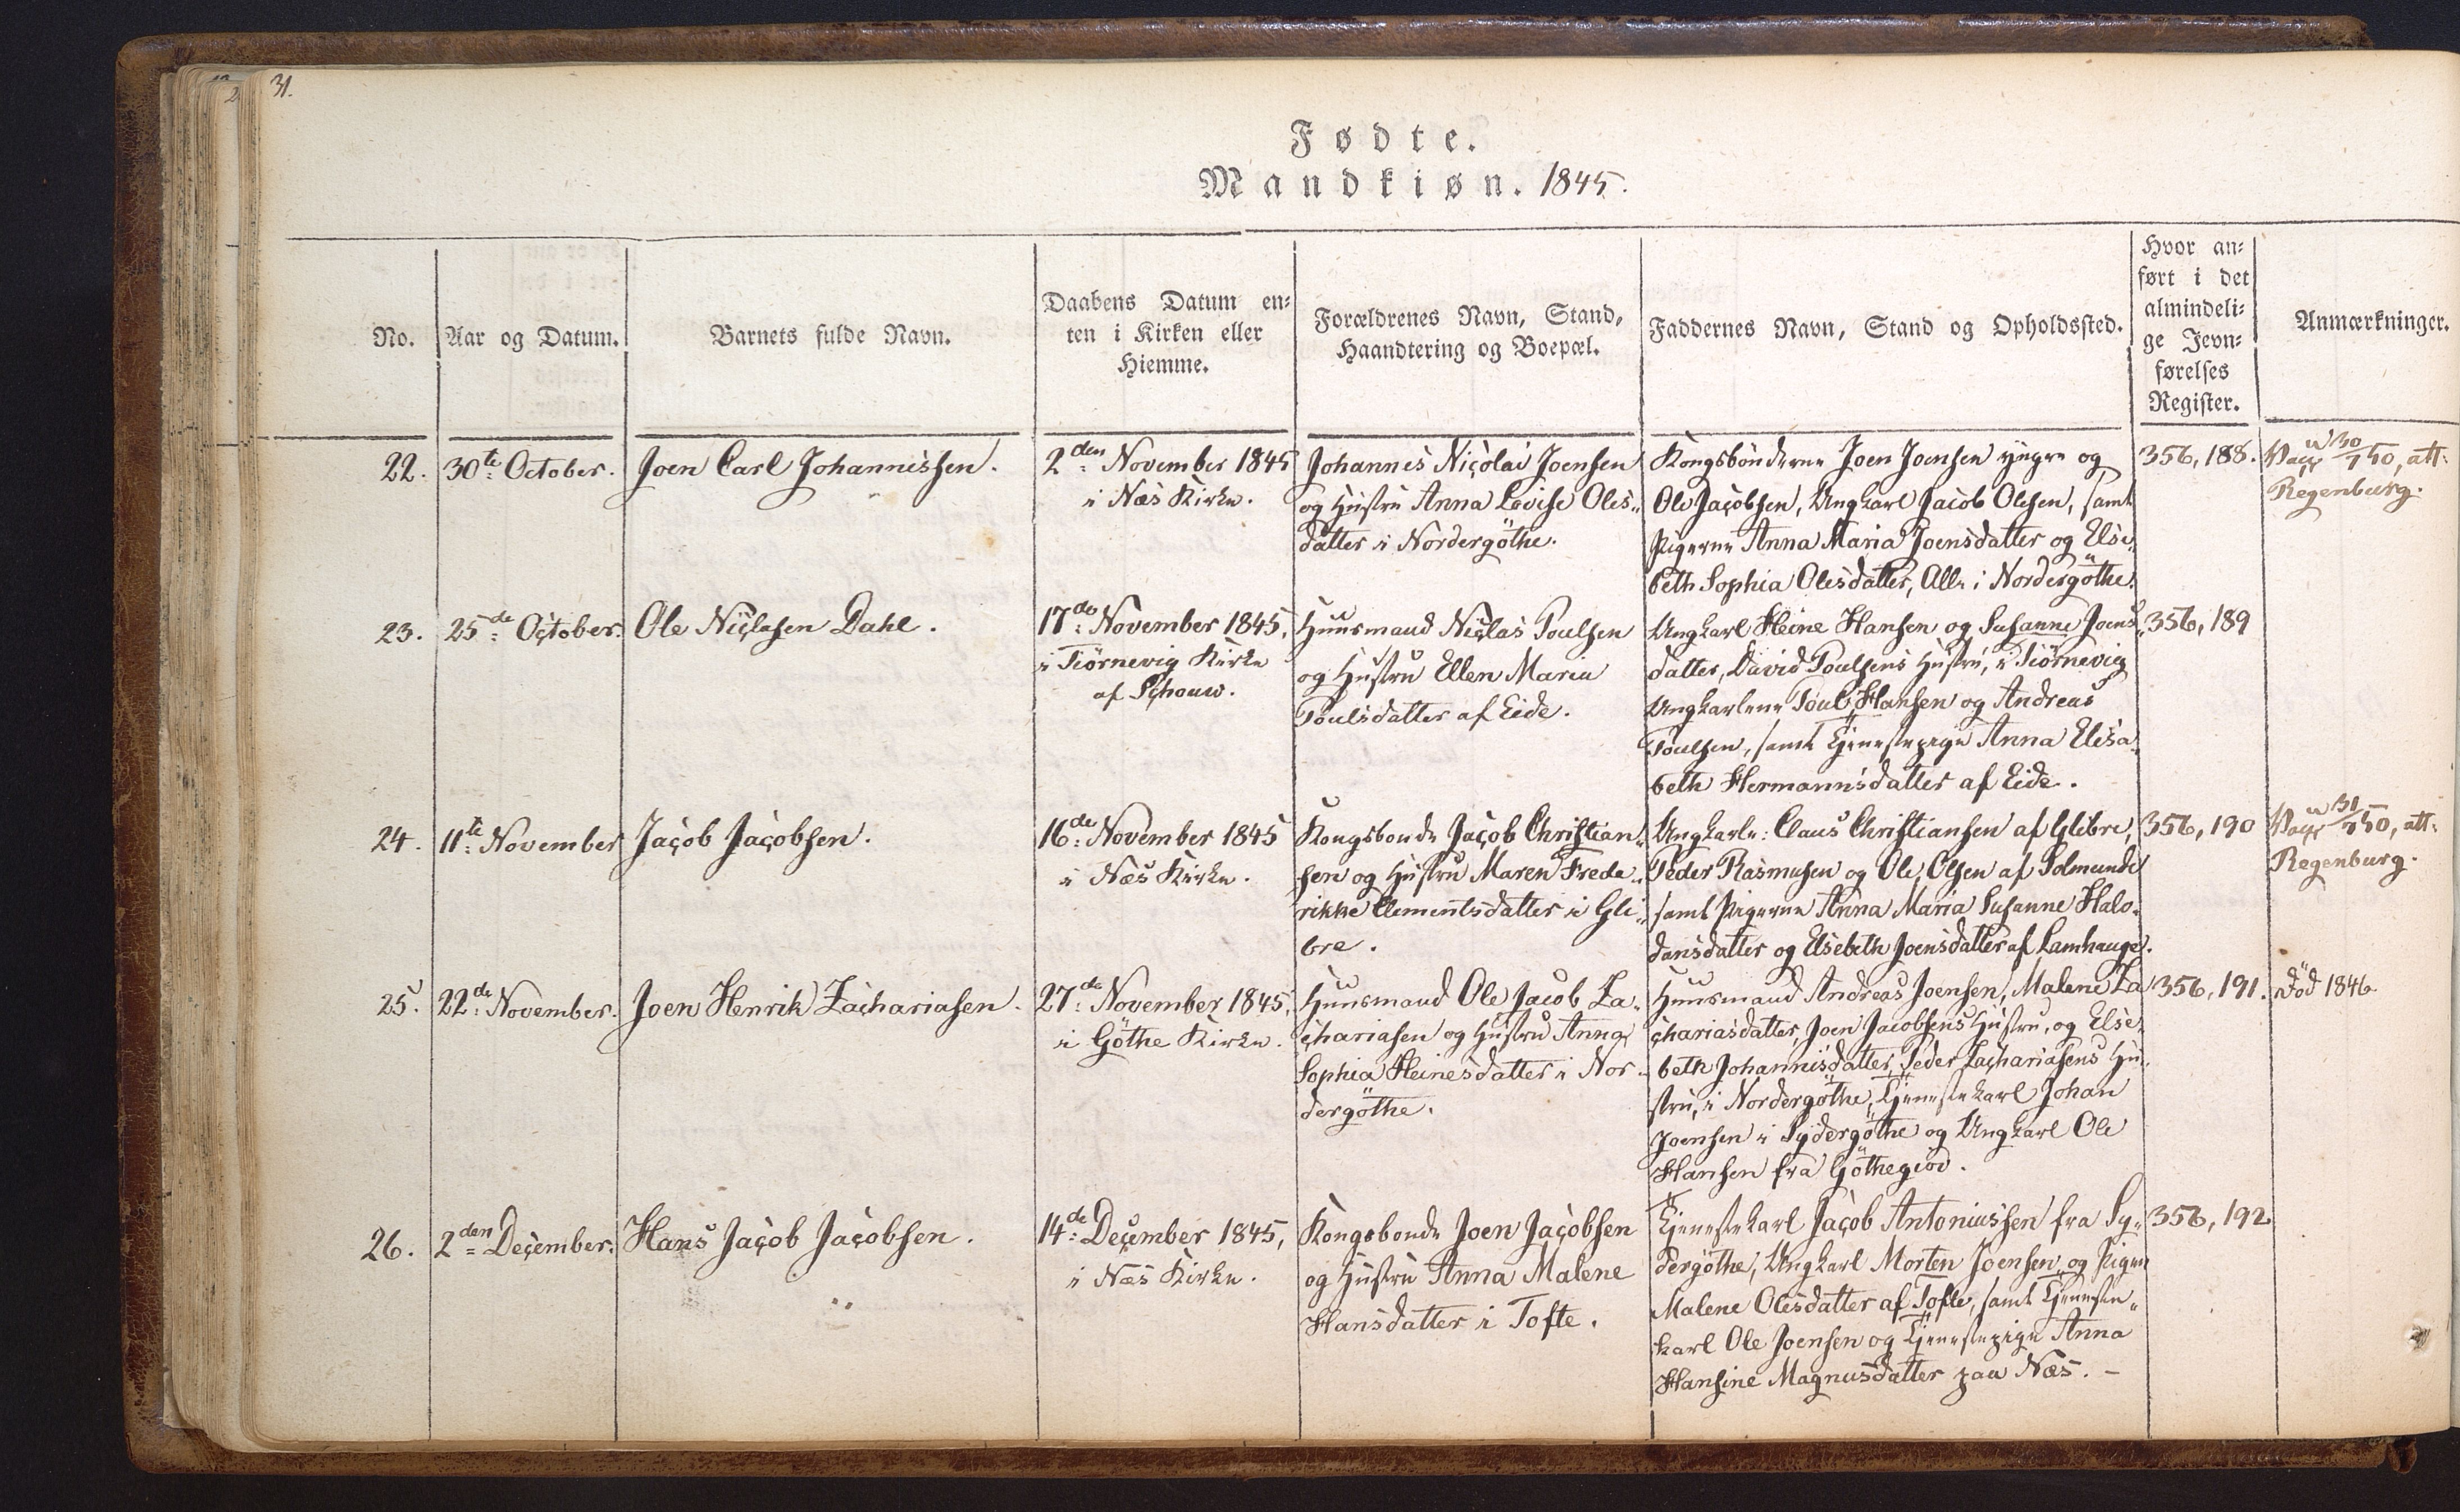 31.
Fødte.
Mandkiøn. 1845.
No.
Aar og Datum.
Barnets fulde Navn.
Daabens Datum en-
ten i Kirken eller
Hiemme.
Forældrenes Navn, Stand,
Haandtering og Boepæl.
Faddernes Navn, Stand og Opholdssted.
Hvor an-
ført i det
almindeli-
ge Jevn-
førelses
Register.
Anmærkninger.
22.
30te October.
Joen Carl Johannissen.
2den November 1845
i Næs Kirke.
Johannes Nicolai Joensen
og Hustru Anna Lovise Oles-
datter i Nordergöthe.
Kongsbönderne Joen Joensen yngre og
Ole Jacobsen, Ungkarl Jacob Olesen, samt
Pigerne Anna Maria Joensdatter og Else-
beth Sophia Olesdatter, Alle i Nordergöthe.
356, 188.
Vacc 30/7 50, att.
Regenburg.
23.
25de October.
Ole Niclasen Dahl.
17de November 1845,
i Tiörnevig Kirke
af Schouw.
Huusmand Niclas Poulsen
og Hustru Ellen Maria
Poulsdatter af Eide.
Ungkarl Heine Hansen og Susanne Joens-
datter, David Poulsens Hustru, i Tiörnevig
Ungkarlene Poul Hansen og Andreas
Poulsen, samt Tjenestepige Anna Elisa-
beth Hermannsdatter af Eide.
356, 189
24.
11te November
Jacob Jacobsen.
16de November 1845
i Næs Kirke.
Kongsbonde Jacob Christian-
sen og Hustru Maren Frede-
rikke Clementsdatter i Gli-
bre.
Ungkarle: Claus Christiansen af Glibre,
Peder Rasmusen og Ole Olsen af Solmunde
samt Pigerne Anna Maria Susanne Halv-
dansdatter og Elsebeth Joensdatter af Lamhauge.
356, 190
Vacc 31/7 50, att.
Regenburg.
25.
22de November.
Joen Henrik Zachariasen.
27de November 1845,
i Göthe Kirke.
Huusmand Ole Jacob Za-
chariasen og Hustru Anna
Sophia Heinesdatter i Nor-
dergöthe.
Huusmand Andreas Joensen, Malene Za
chariasdatter, Joen Jacobsens Hustru, og Else-
beth Johannisdatter, Peder Zachariasens Hu-
stru, i Nordergöthe, Tjenestekarl Johan
Joensen i Sydergöthe og Ungkarl Ole
Hansen fra Göthegiov.
356, 191.
Död 1846.
26.
2den December.
Hans Jacob Jacobsen.
14de December 1845,
i Næs Kirke.
Kongsbonde Joen Jacobsen
og Hustru Anna Malene
Hansdatter i Tofte.
Tjenestekarl Jacob Antoniussen fra Sy-
dergöthe, Ungkarl Morten Joensen og Pigen
Malene Olesdatter af Tofte, samt Tjeneste-
karl Ole Joensen og Tjenestepige Anna
Hansine Magnusdatter paa Næs. -
356, 192